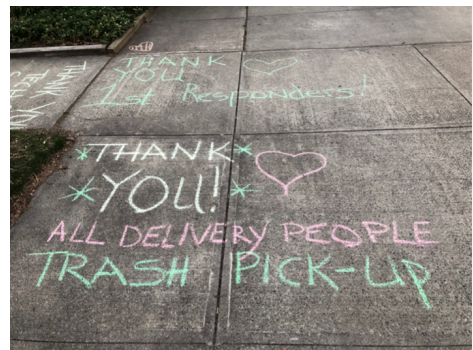 THANK
YOU
1st Responders!
THANK YOU
THANK
YOU!
ALL DELIVERY PEOPLE
TRASH PICK-UP